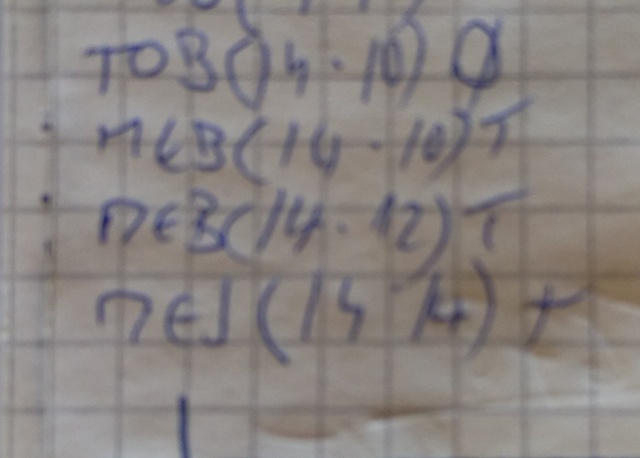 TOB(14.10) Ø
MEB(14.10) T
MEB(14.12) T
MEJ(14 14) T